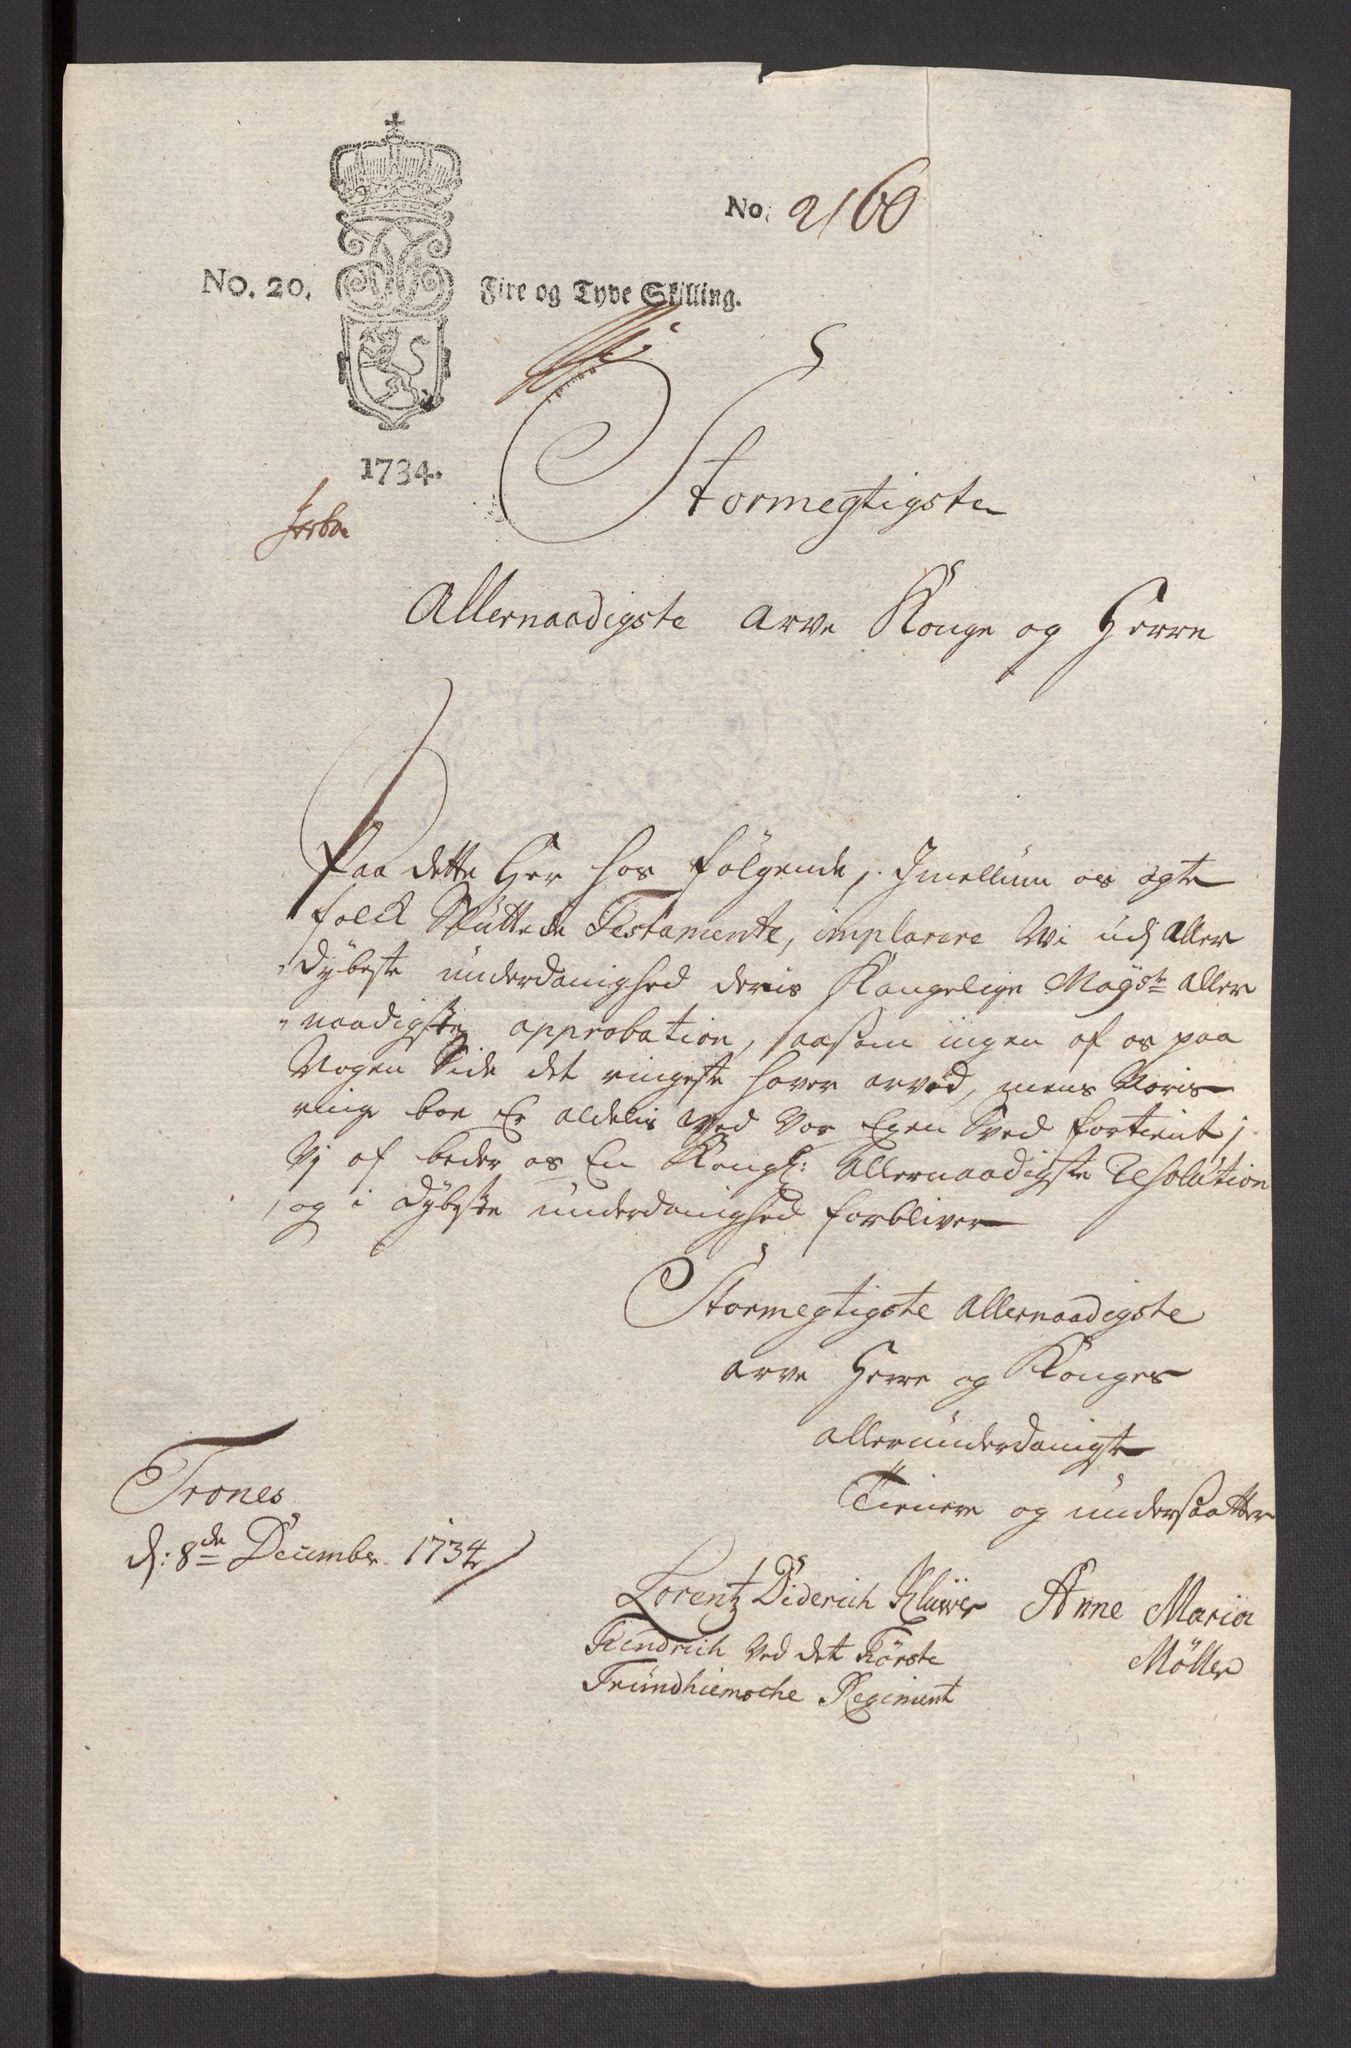 No. 2160
No. 20. Fire og Tyve Skilling.
1734.
Stormegtigste
Allernaadigste Arve Konge og Herre
Paa dette Her hos følgende, Imellum os ægte
folck Sluttede Testamente, implorere Wi udj Aller
dybeste underdanighed deris Kongelige Mayst: Aller
naadigste approbation, saasom ingen af os paa
Nogen Side det ringeste haver arved, mens Voris
ringe boe Er aldelis ved Vor Egen Sved fortient;
Vj af beder os En Kongl: Allernaadigste Resolution
og i dybeste underdanighed forbliver
Stormegtigste Allernaadigste
arve Herre og Konges
allerunderdanigste
Tienere og undersaatter
Trones
d: 8de Decembr. 1734
Lorentz Diderich Klüwer Anne Maria
Fendrich Ved det Förste Möller
Trundhiemsche Regiment